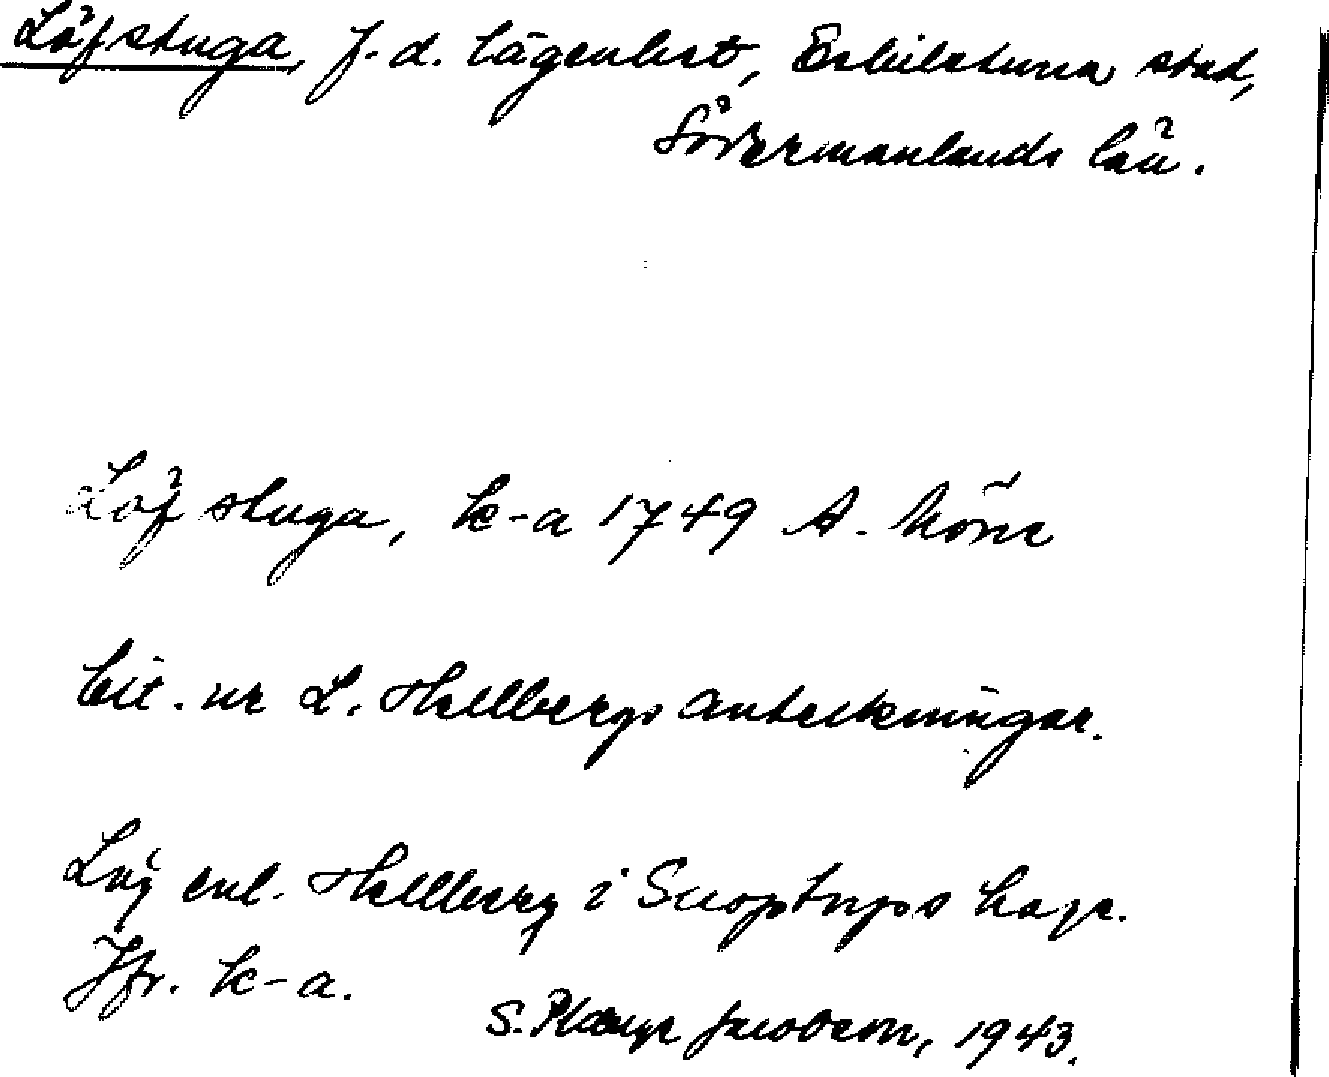 Löfstuga, f.d. lägenhet, Eskilstuna stad,
Södermanlands län.
Löfstuga, k-a 1749 A. Höne
Cit. ur L. Hellbergs anteckningar.
Låg enl. Hellberg i Snoptorps hage.
Jfr. k-a.
S. Plauge Jacobson, 1943.